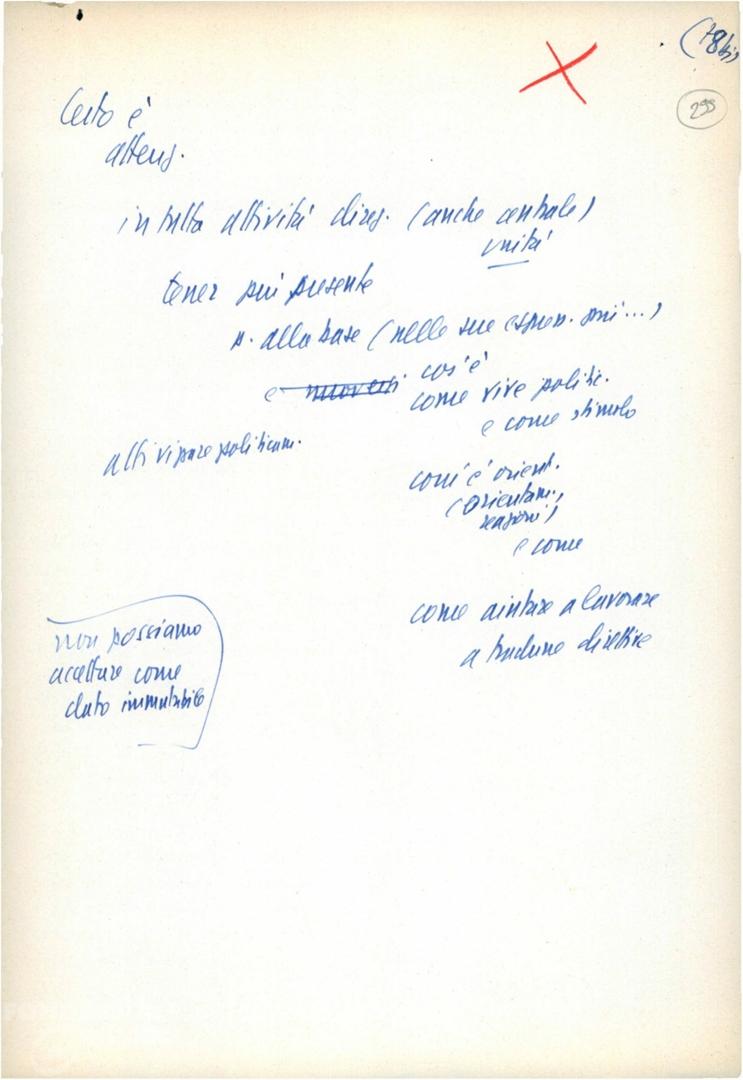 (78bis)
299
Certo è
attenz.
in tutta attività direz. (anche centrale)
unità
tener più presente
p. alla base (nelle sue espress. più ...)
cos'è
e muoversi come vive politic.
e come stimolo
attivizzare politicam.
com'è orient.
(orientam.,
reazioni)
e come
come aiutare a lavorare
a tradurre direttive
non possiamo
accettare come
dato immutabile